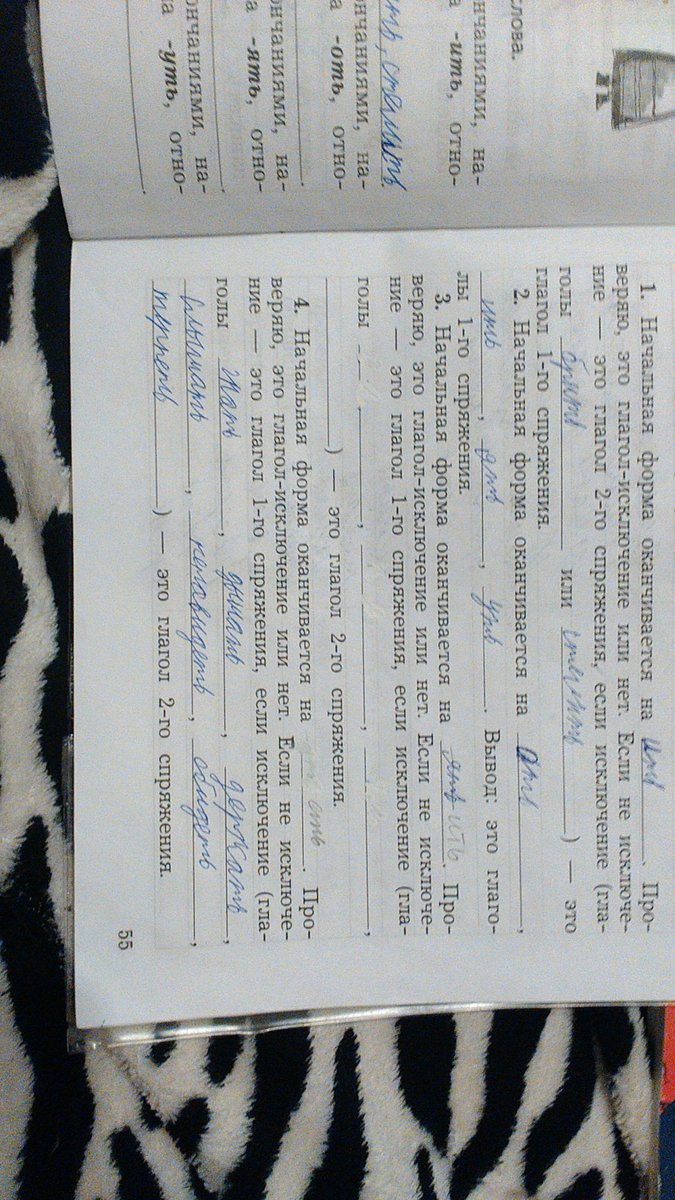 слова.
нчаниями, на-
а -ить, отно-
ть, стелить
нчаниями, на-
а -оть, отно-
нчаниями, на-
а -ять, отно-
ончаниями, на-
на -уть, отно-
1. Начальная форма оканчивается на ить. Про-
веряю, это глагол-исключение или нет. Если не исключе-
ние — это глагол 2-го спряжения, если исключение (гла-
голы брить или стелить) — это
глагол 1-го спряжения.
2. Начальная форма оканчивается на оть,
ить, ять, уть. Вывод: это глаго-
лы 1-го спряжения.
3. Начальная форма оканчивается на ять ить. Про-
веряю, это глагол-исключение или нет. Если не исключе-
ние — это глагол 1-го спряжения, если исключение (гла-
голы , , ,
) — это глагол 2-го спряжения.
4. Начальная форма оканчивается на еть. Про-
веряю, это глагол-исключение или нет. Если не исключе-
ние — это глагол 1-го спряжения, если исключение (гла-
голы , дышать, держать,
слышать, ненавидеть, обидеть,
терпеть) — это глагол 2-го спряжения.
55